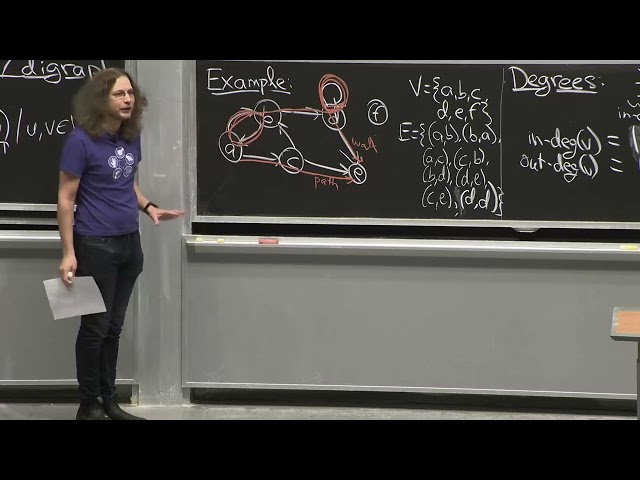 digraph
Example:
V={a,b,c,
d,e,f}
E={(a,b),(b,a),
(a,c),(c,b),
(b,d),(d,e),
(c,e),(d,d)}
a
c
d
e
f
walk
path
Degrees:
in-deg(v) =
out-deg(v) =